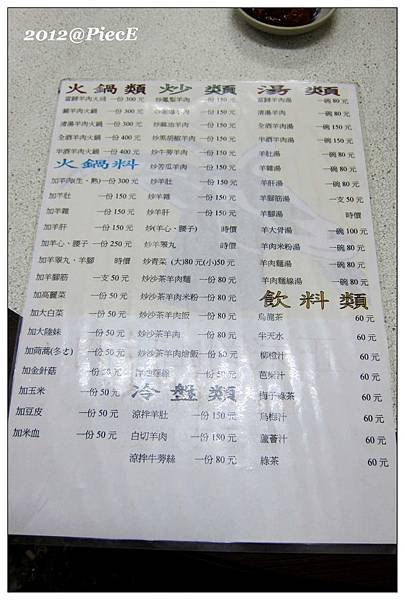 2012@PiecE
火鍋類
當歸羊肉火鍋 一份 300 元
藥羊肉火鍋 一份 300 元
清湯羊肉火鍋 一份 300 元
全酒羊肉火鍋 一份 400 元
半酒羊肉火鍋 一份 400 元
火鍋料
加羊肉(生、熟) 一份 300 元
加羊肚 一份 150 元
加羊雜 一份 150 元
加羊肝 一份 150 元
加羊心、腰子 一份 250 元
加羊睪丸、羊腳 時價
加羊腳筋 一支 50 元
加高麗菜 一份 50 元
加大白菜 一份 50 元
加大陸妹 一份 50 元
加茼蒿(冬ㄜ) 一份 50 元
加金針菇 一份 50 元
加玉米 一份 50 元
加豆皮 一份 50 元
加米血 一份 50 元
炒類
炒麻油羊肉 一份 150 元
炒黑胡椒羊肉 一份 150 元
炒牛蒡羊肉 一份 150 元
炒苦瓜羊肉 一份 150 元
炒羊肚 一份 150 元
炒羊雜 一份 150 元
炒羊肝 一份 150 元
炒(羊心、腰子) 時價
炒羊睪丸 時價
炒青菜 (大)80 元(小)50 元
炒沙茶羊肉麵 一份 80 元
炒沙茶羊肉米粉 一份 80 元
炒沙茶羊肉飯 一份 80 元
炒沙茶羊肉 一份 150 元
炒沙茶羊肉燴飯 一份 80 元
麻油麵線 一份 50 元
冷盤類
涼拌羊肚 一份 150 元
白切羊肉 一份 150 元
涼拌牛蒡絲 一份 80 元
湯類
當歸羊肉湯 一碗 80 元
清湯羊肉 一碗 80 元
全酒羊肉湯 一碗 150 元
半酒羊肉湯 一碗 150 元
羊肚湯 一碗 80 元
羊雜湯 一碗 80 元
羊肝湯 一碗 80 元
羊腳筋湯 一支 50 元
羊腳湯 時價
羊大骨湯 一碗 100 元
羊肉米粉湯 一碗 80 元
羊肉麵湯 一碗 80 元
羊肉麵線湯 一碗 80 元
飲料類
烏龍茶 60 元
半天水 60 元
柳橙汁 60 元
芭樂汁 60 元
梅子綠茶 60 元
烏梅汁 60 元
蘆薈汁 60 元
綠茶 60 元